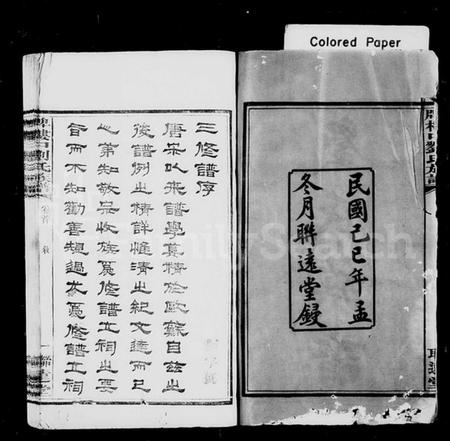 Colored Paper
民國己巳年孟
冬月聯遠堂鋟
三修譜序
唐宋以來譜學莫精於歐蘇自茲出
後譜例出精詳惟清出紀文達而已
心第知敬宗收族爲修譜立祠出要
旨而不知勸善規過尤爲修譜立祠
卷首
FamilySearch